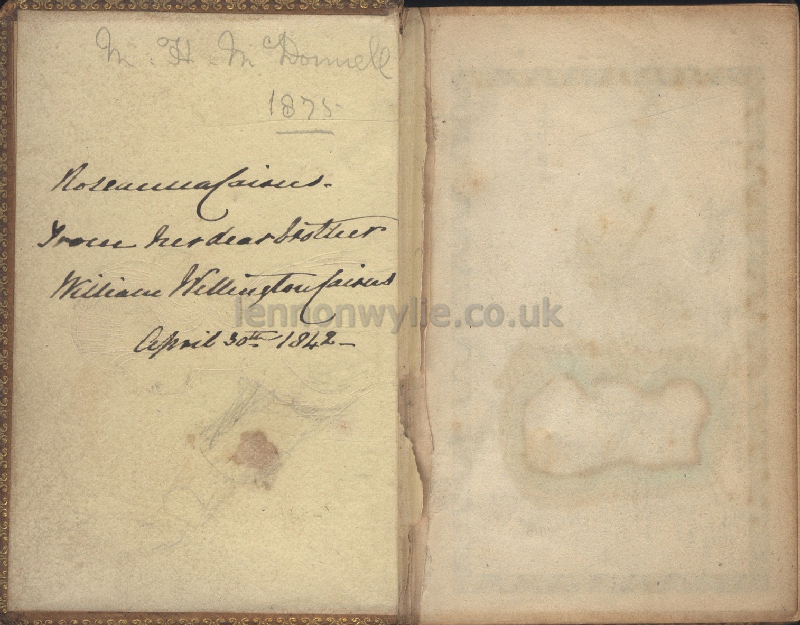 M. H. McDonnell
1875
Roseanna Cairns.
From her dear brother
William Wellington Cairns
lennonwylie.co.uk
April 30th 1842-